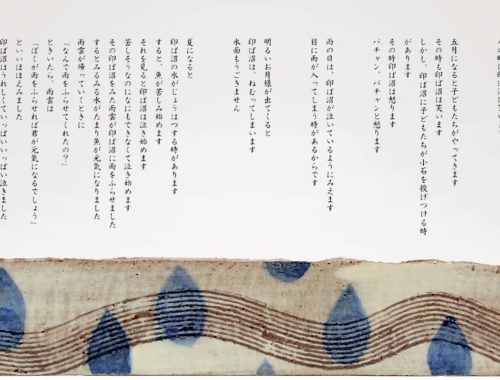 五月になると子どもたちがやってきます
その時も印ば沼は笑います
しかし、印ば沼に子どもたちが小石を投げつける時
があります
その時印ば沼は怒ります
バチャン、バチャンと怒ります
雨の日は、印ば沼が泣いているようにみえます
目に雨が入ってしまう時があるからです
明るいお月様が出てくると
印ば沼は、ねむってしまいます
水面もうごきません
夏になると
印ば沼の水がじょうはつする時があります
すると、魚が苦しみ始めます
それを見ると印ば沼は泣き始めます
苦しそうなのになにもできなくて泣き始めます
その印ば沼をみた雨雲が印ば沼に雨をふらせました
するとみるみる水がたまり魚が元気になりました
雨雲が帰っていくときに
「なんで雨をふらせてくれたの？」
ときいたら、雨雲は
「ぼくが雨をふらせれば君が元気になるでしょう」
といいほほえみました
印ば沼はうれしくていっぱいいっぱい泣きました